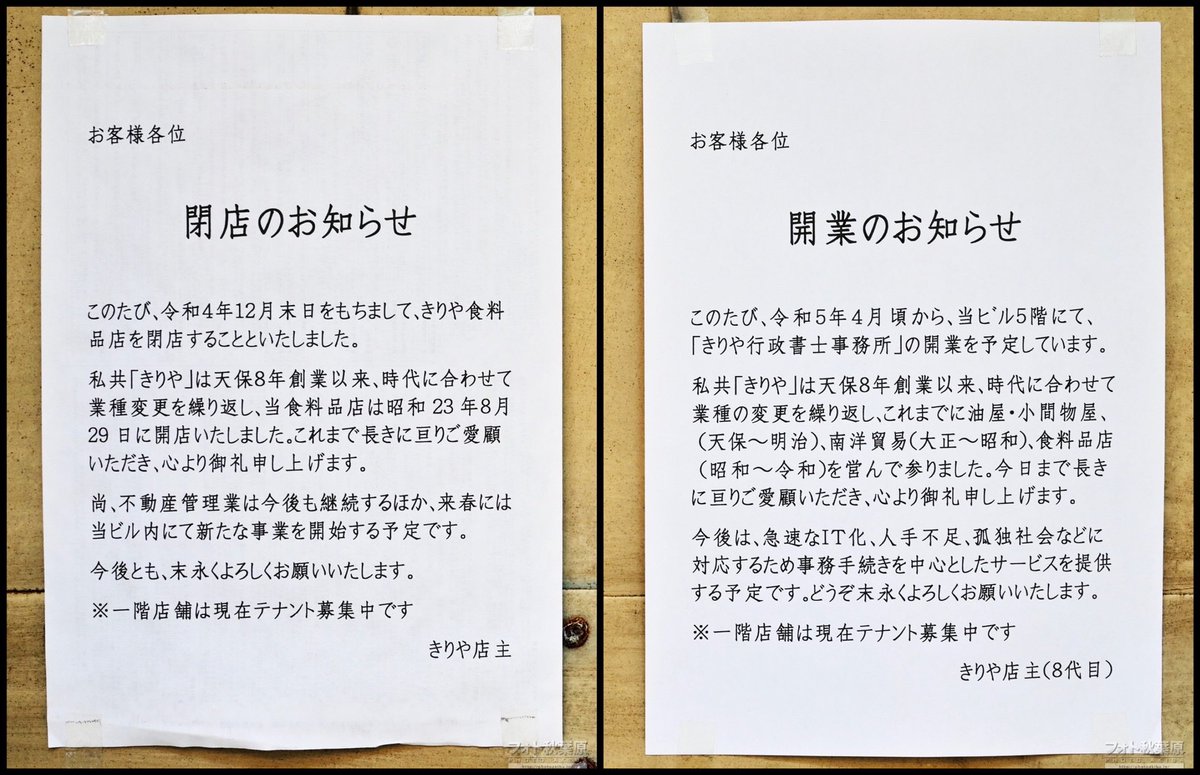 お客様各位
閉店のお知らせ
このたび、令和4年12月末日をもちまして、きりや食料
品店を閉店することといたしました。
私共「きりや」は天保8年創業以来、時代に合わせて
業種変更を繰り返し、当食料品店は昭和23年8月
29日に開店いたしました。これまで長きに亘りご愛顧
いただき、心より御礼申し上げます。
尚、不動産管理業は今後も継続するほか、来春には
当ビル内にて新たな事業を開始する予定です。
今後とも、末永くよろしくお願いいたします。
※一階店舗は現在テナント募集中です
きりや店主
フォト秋葉原
お客様各位
開業のお知らせ
このたび、令和5年4月頃から、当ビル5階にて、
「きりや行政書士事務所」の開業を予定しています。
私共「きりや」は天保8年創業以来、時代に合わせて
業種の変更を繰り返し、これまでに油屋・小間物屋、
(天保～明治)、南洋貿易(大正～昭和)、食料品店
(昭和～令和)を営んで参りました。今日まで長き
に亘りご愛顧いただき、心より御礼申し上げます。
今後は、急速なIT化、人手不足、孤独社会などに
対応するため事務手続きを中心としたサービスを提供
する予定です。どうぞ末永くよろしくお願いいたします。
※一階店舗は現在テナント募集中です
きりや店主(8代目)
フォト秋葉原